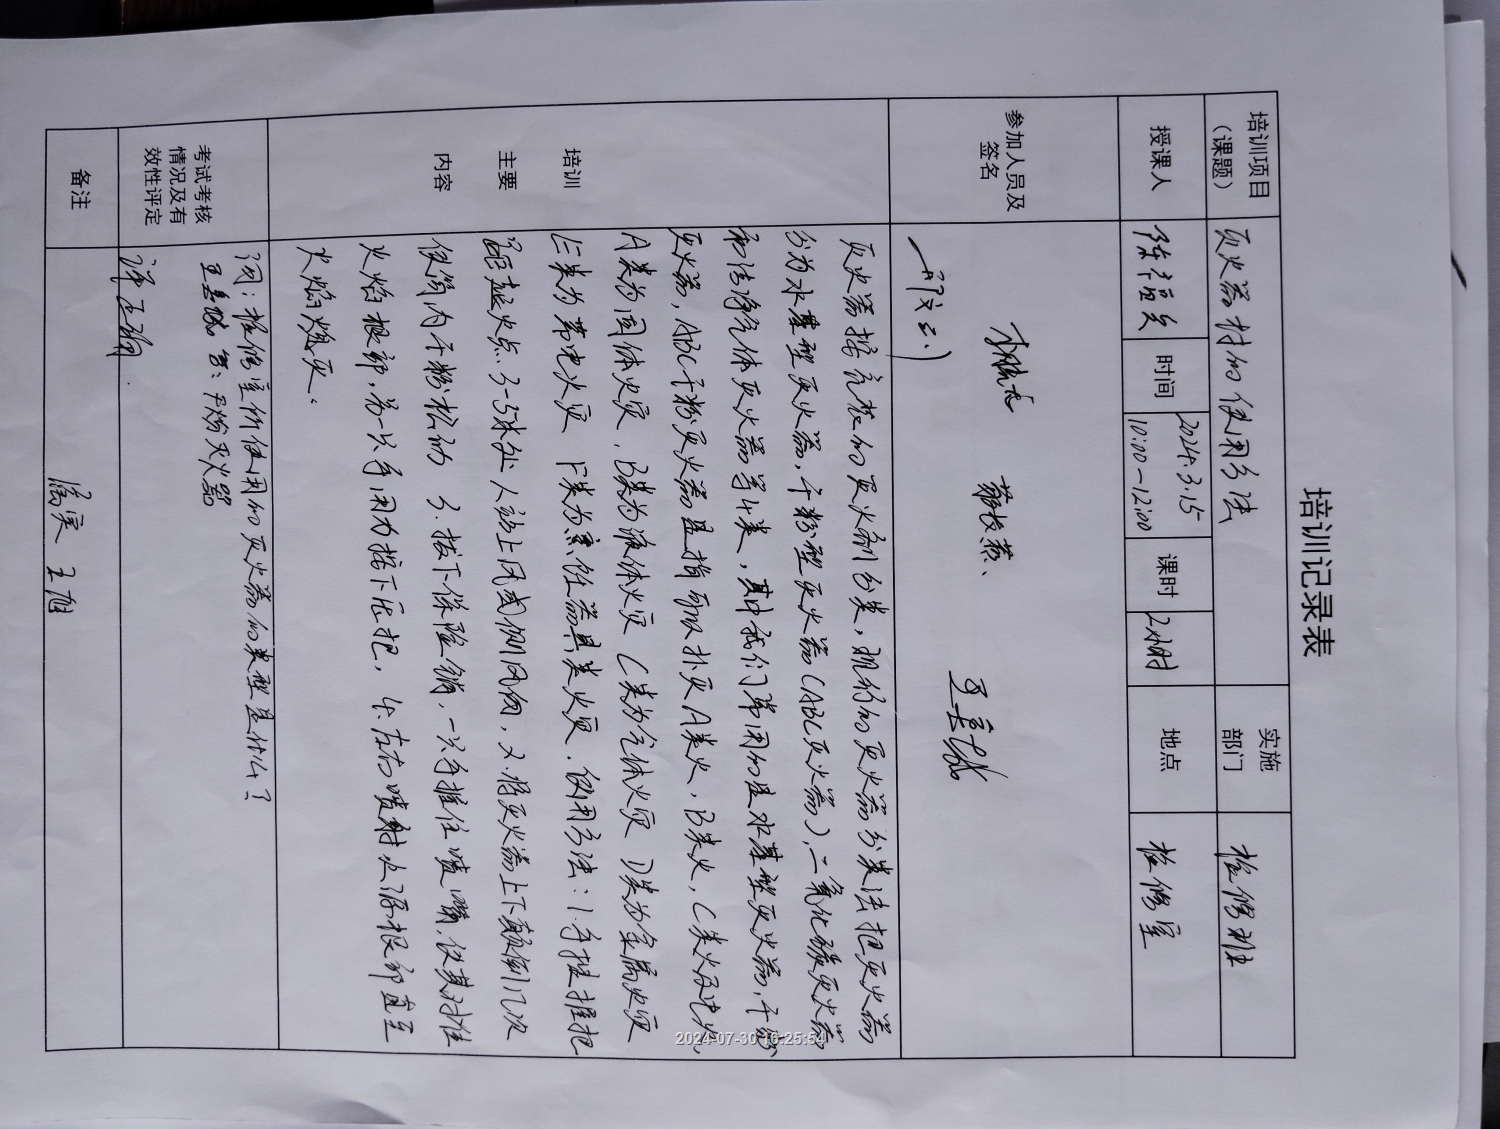 培训记录表
培训项目（课题） 灭火器材的使用方法 实施部门 检修班
授课人 陈福吴 时间 2024.3.15 10:00-12:00 课时 2小时 地点 检修室
参加人员及签名
培训主要内容
灭火器按充装的灭火剂分类，现行的灭火器分类法把灭火器
分为水基型灭火器，干粉型灭火器（ABC灭火器），二氧化碳灭火器
和洁净气体灭火器等4类，其中我们常用的是水基型灭火器，干粉
灭火器，ABC干粉灭火器是指可以扑灭A类火，B类火，C类火及电火，
A类为固体火灾，B类为液体火灾 C类为气体火灾 D类为金属火灾
E类为带电火灾 F类为烹饪器具类火灾．使用方法：1.手提提把
距起火点3-5米处 人站上风或侧风向，2.将灭火器上下颠倒几次
使筒内干粉松动 3.拔下保险销，一只手握住喷嘴，使其对准
火焰根部，另一只手用力按下压把，4.左右喷射火源根部直至
火焰熄灭．
考试考核情况及有效性评定
问：检修室所使用的灭火器的类型是什么？
答：干粉灭火器
备注
落实 王旭
2024-07-30 16:25:54